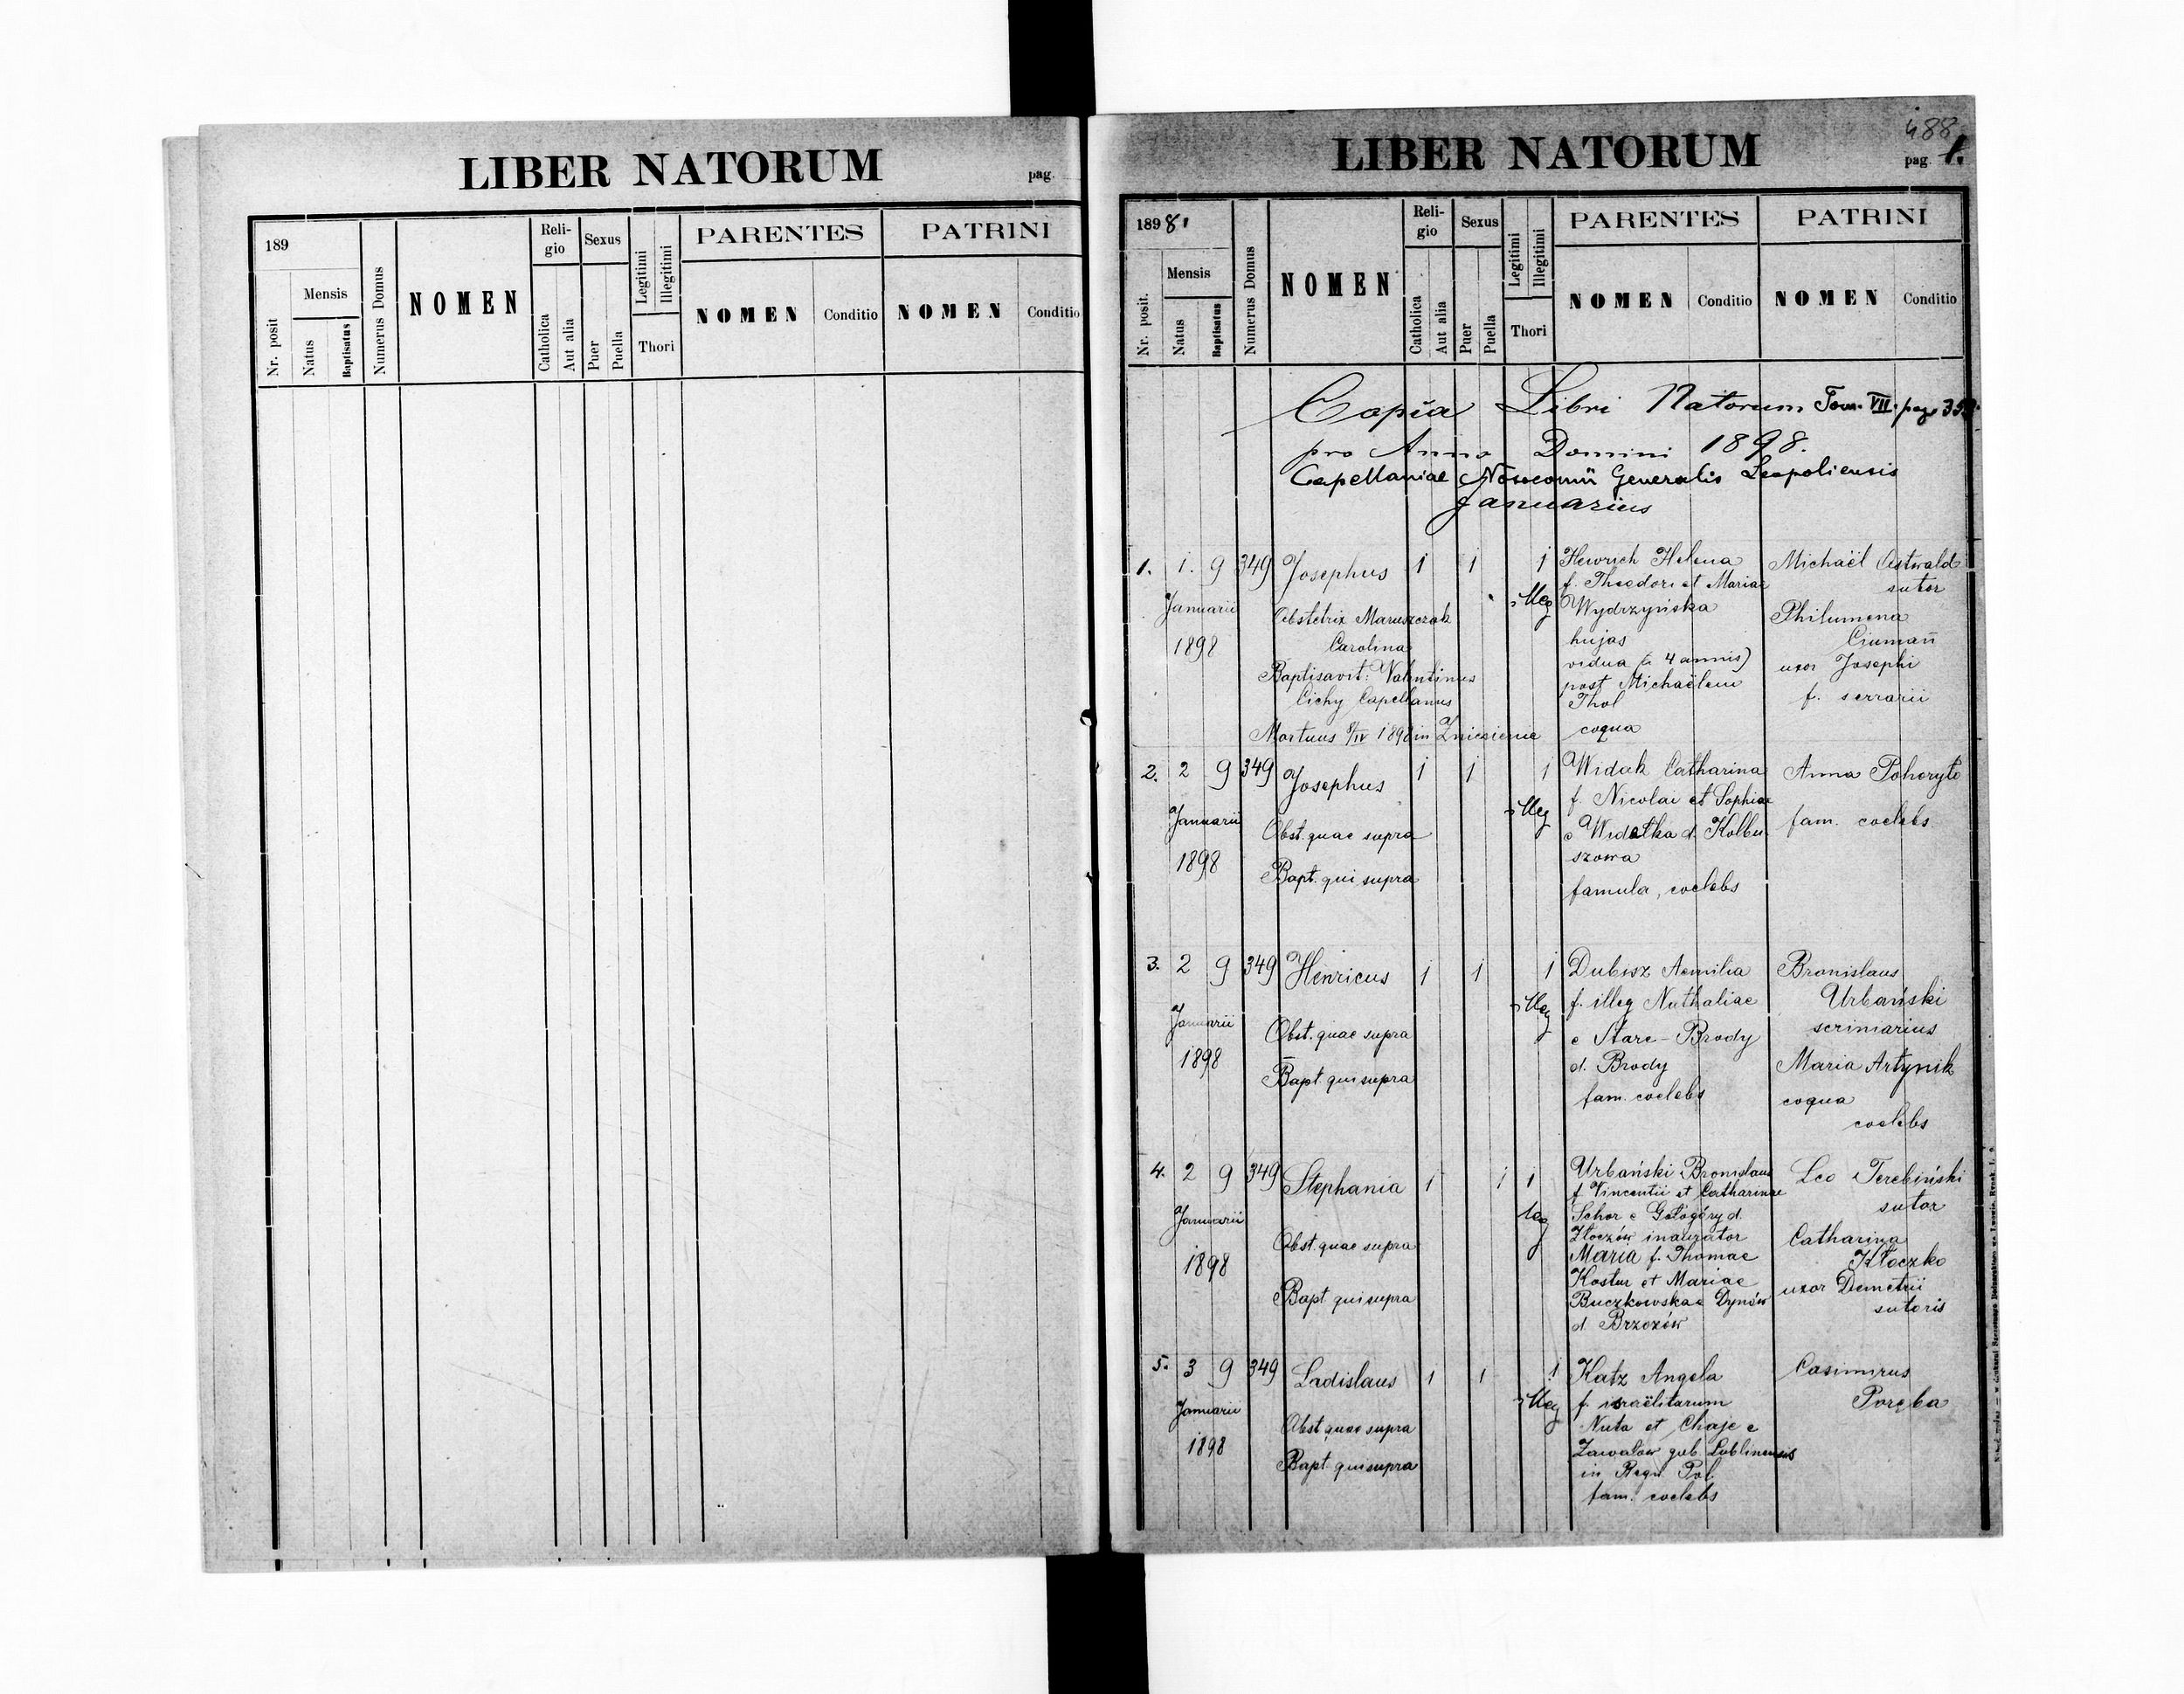 LIBER NATORUM
pag.
189
Nr. posit
Mensis
Natus
Baptisatus
Numerus Domus
NOMEN
Reli-
gio
Catholica
Aut alia
Sexus
Puer
Puella
Legitimi
Illegitimi
Thori
PARENTES
NOMEN
Conditio
PATRINI
NOMEN
Conditio
488
LIBER NATORUM
pag. 1.
1898.
Nr. posit.
Mensis
Natus
Baptisatus
Numerus Domus
NOMEN
Reli-
gio
Catholica
Aut alia
Sexus
Puer
Puella
Legitimi
Illegitimi
Thori
PARENTES
NOMEN
Conditio
PATRINI
NOMEN
Conditio
Copia Libri Natorum Tom. VII. pag.
pro Anno Domini 1898.
Capellaniae Nosocomii Generalis Leopoliensis
Januarius
1. 1. 9 349 Josephus 1 1 1
Januarii
1898
Obstetrix Maruszczak
Carolina
Baptisavit: Valentinus
Cichy Capellanus
Mortuus 8/IV 1898 in Zniesienie
illeg
Helena
f. Theodori et Mariae
Wydrzyńska
hujas
vidua (a 4 annis)
post Michaëlem
Thol
coqua
Michaël Ostwald
sutor
Philumena
Ciumań
uxor Josephi
f. serrarii
2. 2 9 349 Josephus 1 1 1
Januarii
1898
Obst. quae supra
Bapt. qui supra
illeg
Widak Catharina
f. Nicolai et Sophiae
e Widełka d. Kolbu
szowa
famula, coelebs
Anna Pohoryło
fam. coelebs
3. 2 9 349 Henricus 1 1 1
Januarii
1898
Obst. quae supra
Bapt. qui supra
illeg
Dubisz Aemilia
f. illeg Nathaliae
e Stare-Brody
d. Brody
fam. coelebs
Bronislaus
Urbański
scriniarius
Maria Artynik
coqua
coelebs
4. 2 9 349 Stephania 1 1 1
Januarii
1898
Obst. quae supra
Bapt. qui supra
leg
Urbański Bronislaus
f. Vincentii et Catharinae
Schor e Gołogóry d.
Złoczów inaurator
Maria f. Thomae
Kostur et Mariae
Buczkowska e Dynów
d. Brzozów
Leo Terebiński
sutor
Catharina
Kłoczko
uxor Demetrii
sutoris
5. 3 9 349 Ladislaus 1 1 1
Januarii
1898
Obst quae supra
Bapt. qui supra
illeg
Katz Angela
f. israëlitarum
Nuta et Chaje e
Zawalow gub. Lublinensis
in Regn. Pol.
fam. coelebs
Casimirus
Poręba